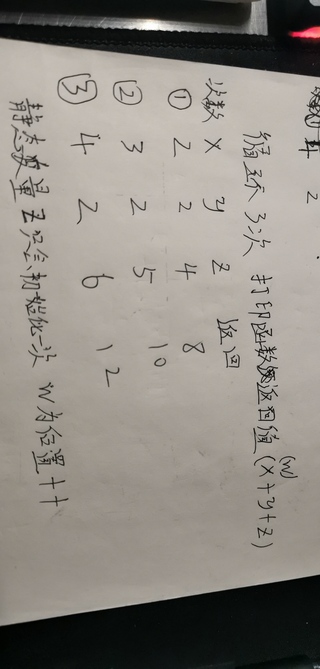 4 2
循环 3次 打印函数返回值(x+y+z)
(w)
次数 x y z 返回
① 2 2 4 8
② 3 2 5 10
③ 4 2 6 12
静态变量 z只会初始化一次 w为后置++